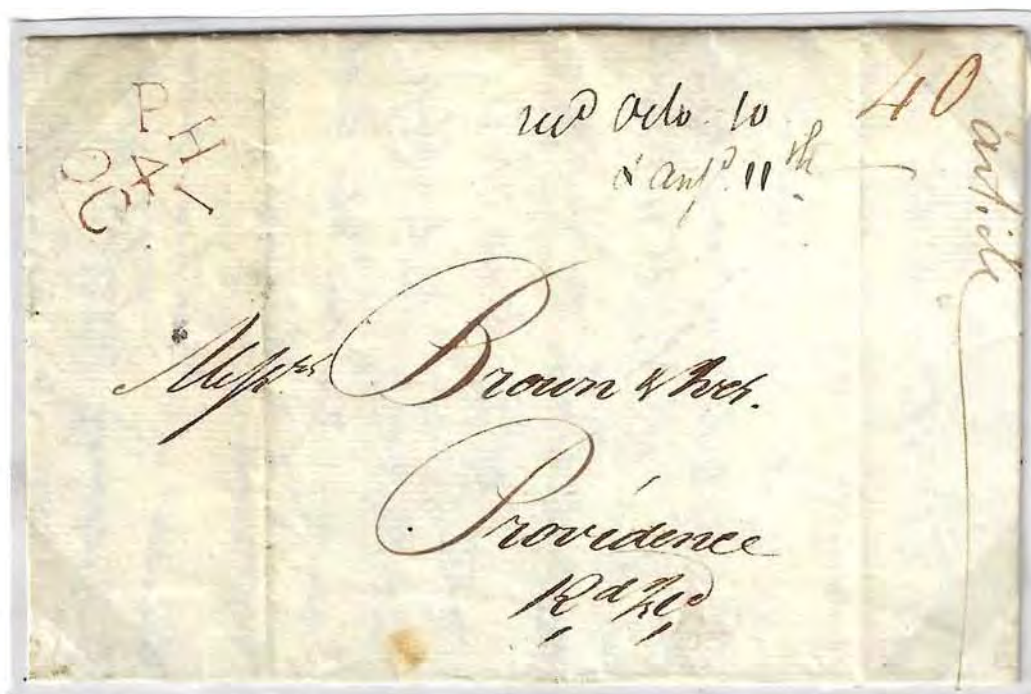 PHI
4
OC
recd Octo. 10
& ansd. 11th
40
article
Messrs Brown & Ives.
Providence
Rd Isd